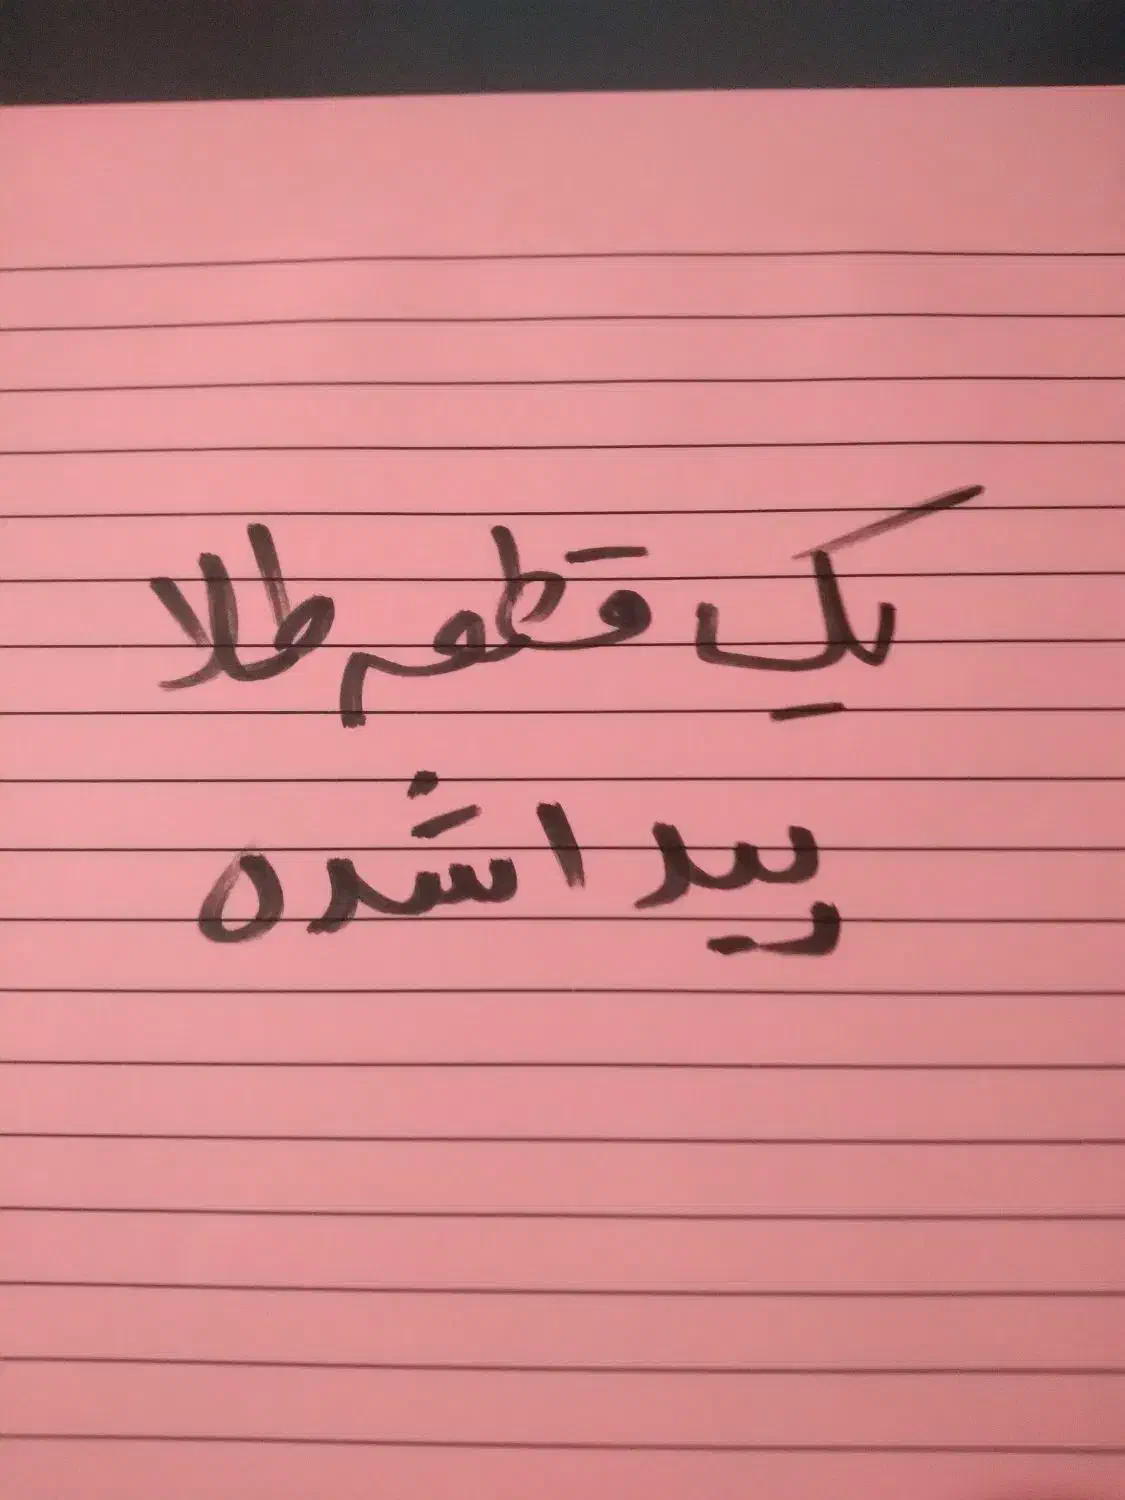 یک قطعه طلا
پیدا شده